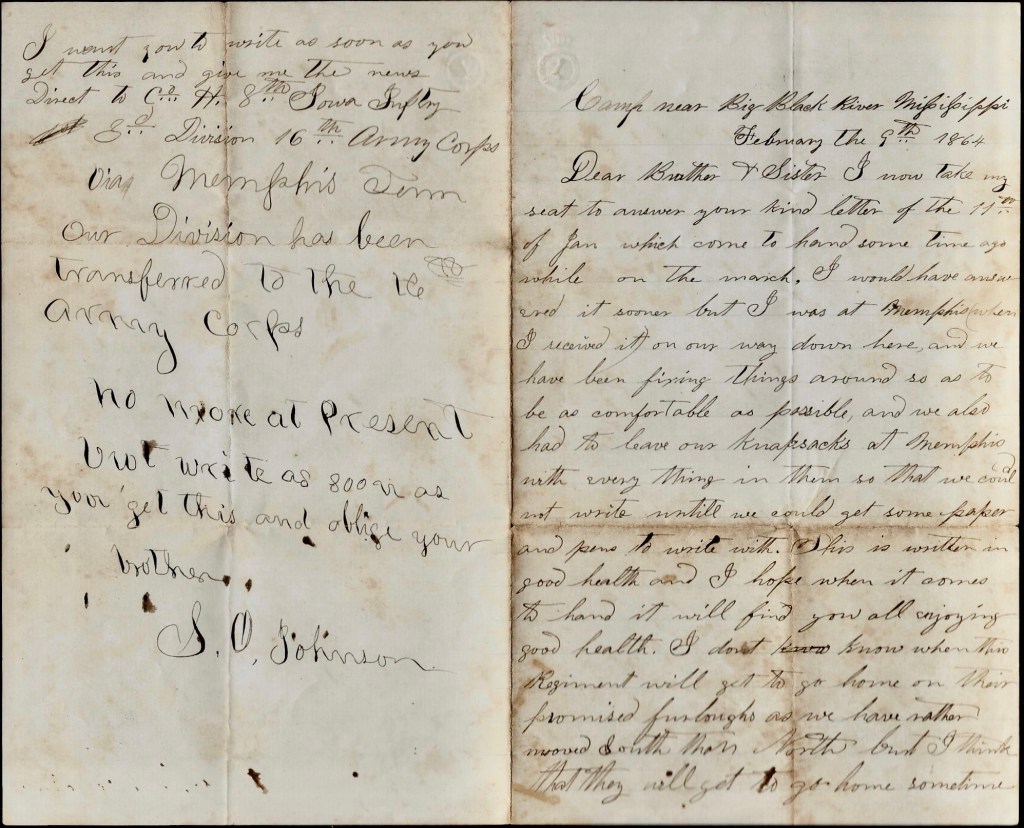 I want you to write as soon as you
get this and give me the news
Direct to Co H. 8th Iowa Inftry
3d Division 16th Army Corps
Viag Memphis Tenn
Our Division has been
transferred to the 16
Army Corps
no more at Present
but write as soon as
you get this and oblige your
brother
S. O. Johnson
Camp near Big Black River Missisippi
February the 9th 1864
Dear Brother & Sister I now take my
seat to answer your kind letter of the 11th
of Jan which come to hand some time ago
while on the march. I would have answ
ered it sooner but I was at Memphis (when
I received it) on our way down here, and we
have been fixing things around so as to
be as comfortable as possible, and we also
had to leave our knapsacks at Memphis
with every thing in them so that we could
not write untill we could get some paper
and pens to write with. This is written in
good health and I hope when it comes
to hand it will find you all enjoying
good health. I dont know when this
Regiment will get to go home on their
promised furloughs as we have rather
mooved South than North but I think
that they will get to go home sometime